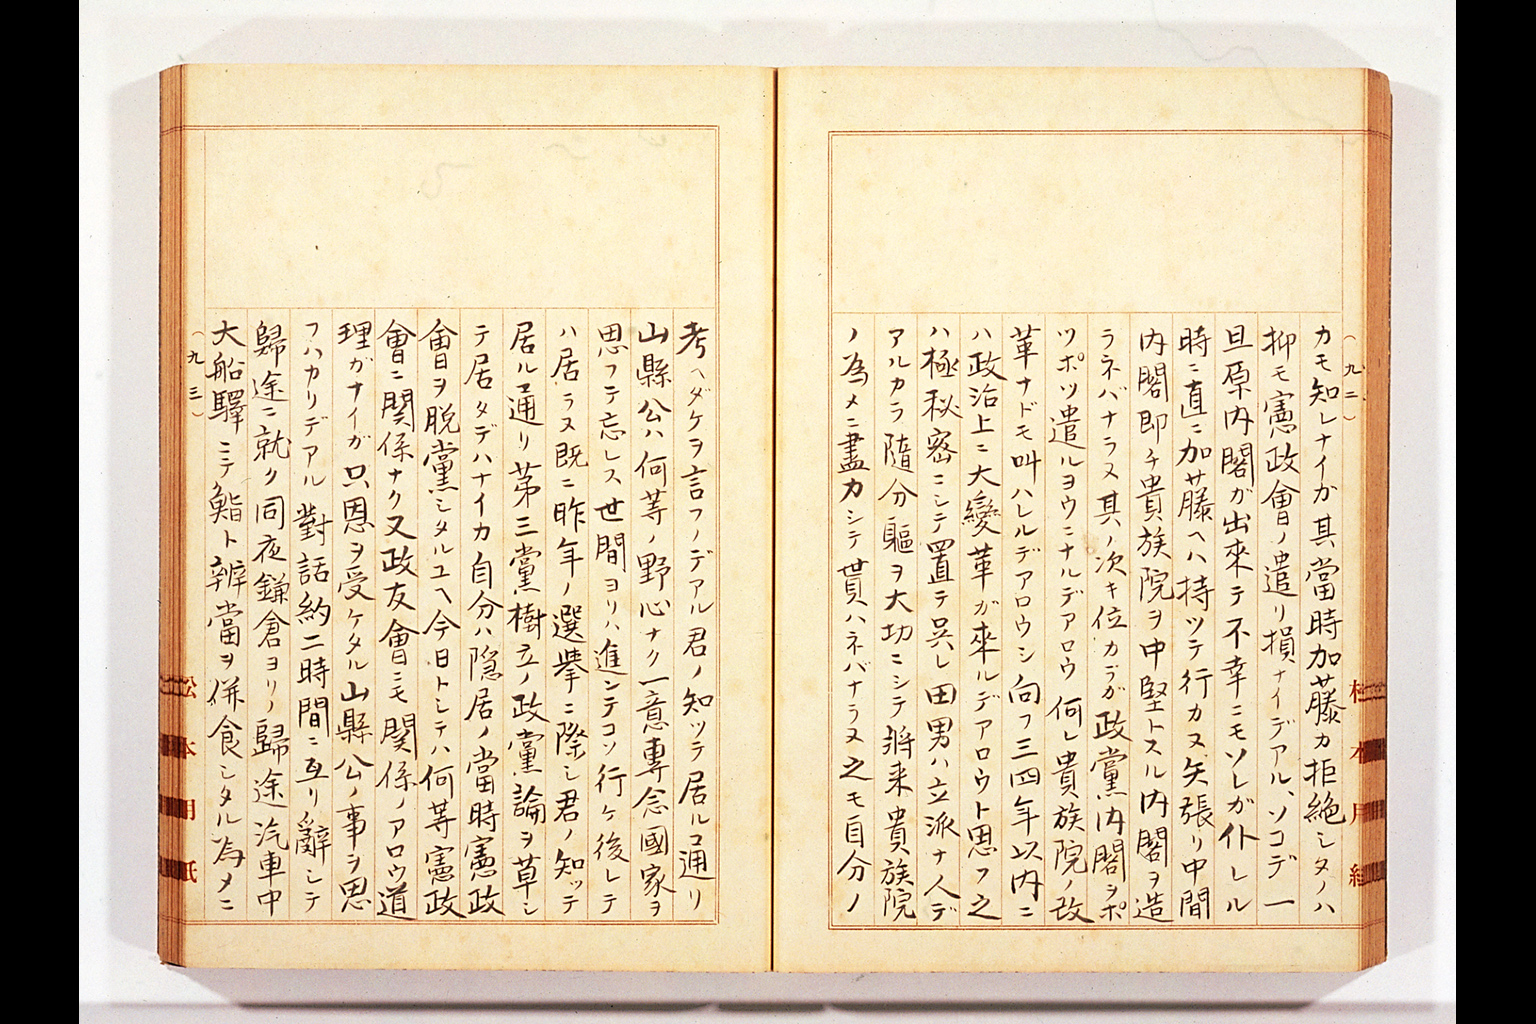 (九二)
カモ知レナイガ其當時加藤カ拒絶シタノハ
抑モ憲政會ノ遣リ損ナイデアル、ソコデ一
旦原内閣が出來テ不幸ニモソレガ仆レル
時ニ直ニ加藤ヘハ持ツテ行カヌ矢張リ中間
内閣即チ貴族院ヲ中堅トスル内閣ヲ造
ラネバナラヌ其ノ次キ位カラガ政黨内閣ヲポ
ツポツ遣ルヨウニナルデアロウ何レ貴族院ノ改
革ナドモ叫ハレルデアロウシ向フ三四年以内ニ
ハ政治上ニ大變革が來ルデアロウト思フ之
ハ極秘密ニシテ置テ呉レ田男ハ立派ナ人デ
アルカラ隨分軀ヲ大切ニシテ將来貴族院
ノ為メニ盡力シテ貰ハネバナラヌ之モ自分ノ
松本用紙
考ヘダケヲ言フノデアル君ノ知ツテ居ルヿ通リ
山縣公ハ何等ノ野心ナク一意專念國家ヲ
思フテ忘レス世間ヨリハ進ンテコソ行ケ後レテ
ハ居ラヌ既ニ昨年ノ選挙ニ際シ君ノ知ッテ
居ルヿ通リ第三黨樹立ノ政黨論ヲ草シ
テ居タデハナイカ自分ハ隠居ノ當時憲政
會ヲ脱黨シタルユヘ今日トシテハ何等憲政
會ニ関係ナク又政友會ニモ関係ノアロウ道
理ガナイガ只恩ヲ受ケタル山縣公ノ事ヲ思
フハカリデアル對話約二時間ニ亙リ辭シテ
歸途ニ就ク同夜鎌倉ヨリノ歸途汽車中
大船驛ニテ鮨ト辨當ヲ併食シタル為メニ
(九三)
松本用紙